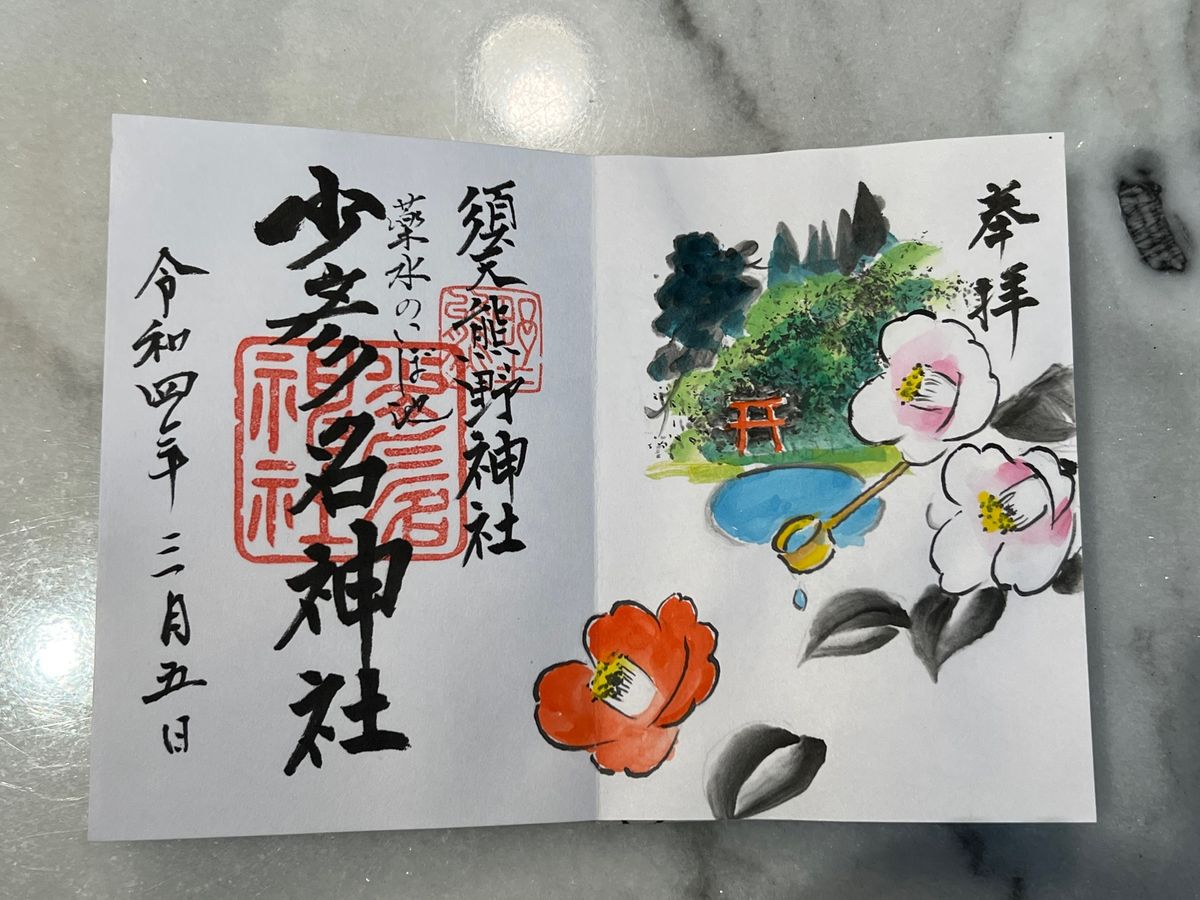 奉拝
須天熊野神社
薬水のいぼ池
少彦名神社
令和四年二月五日